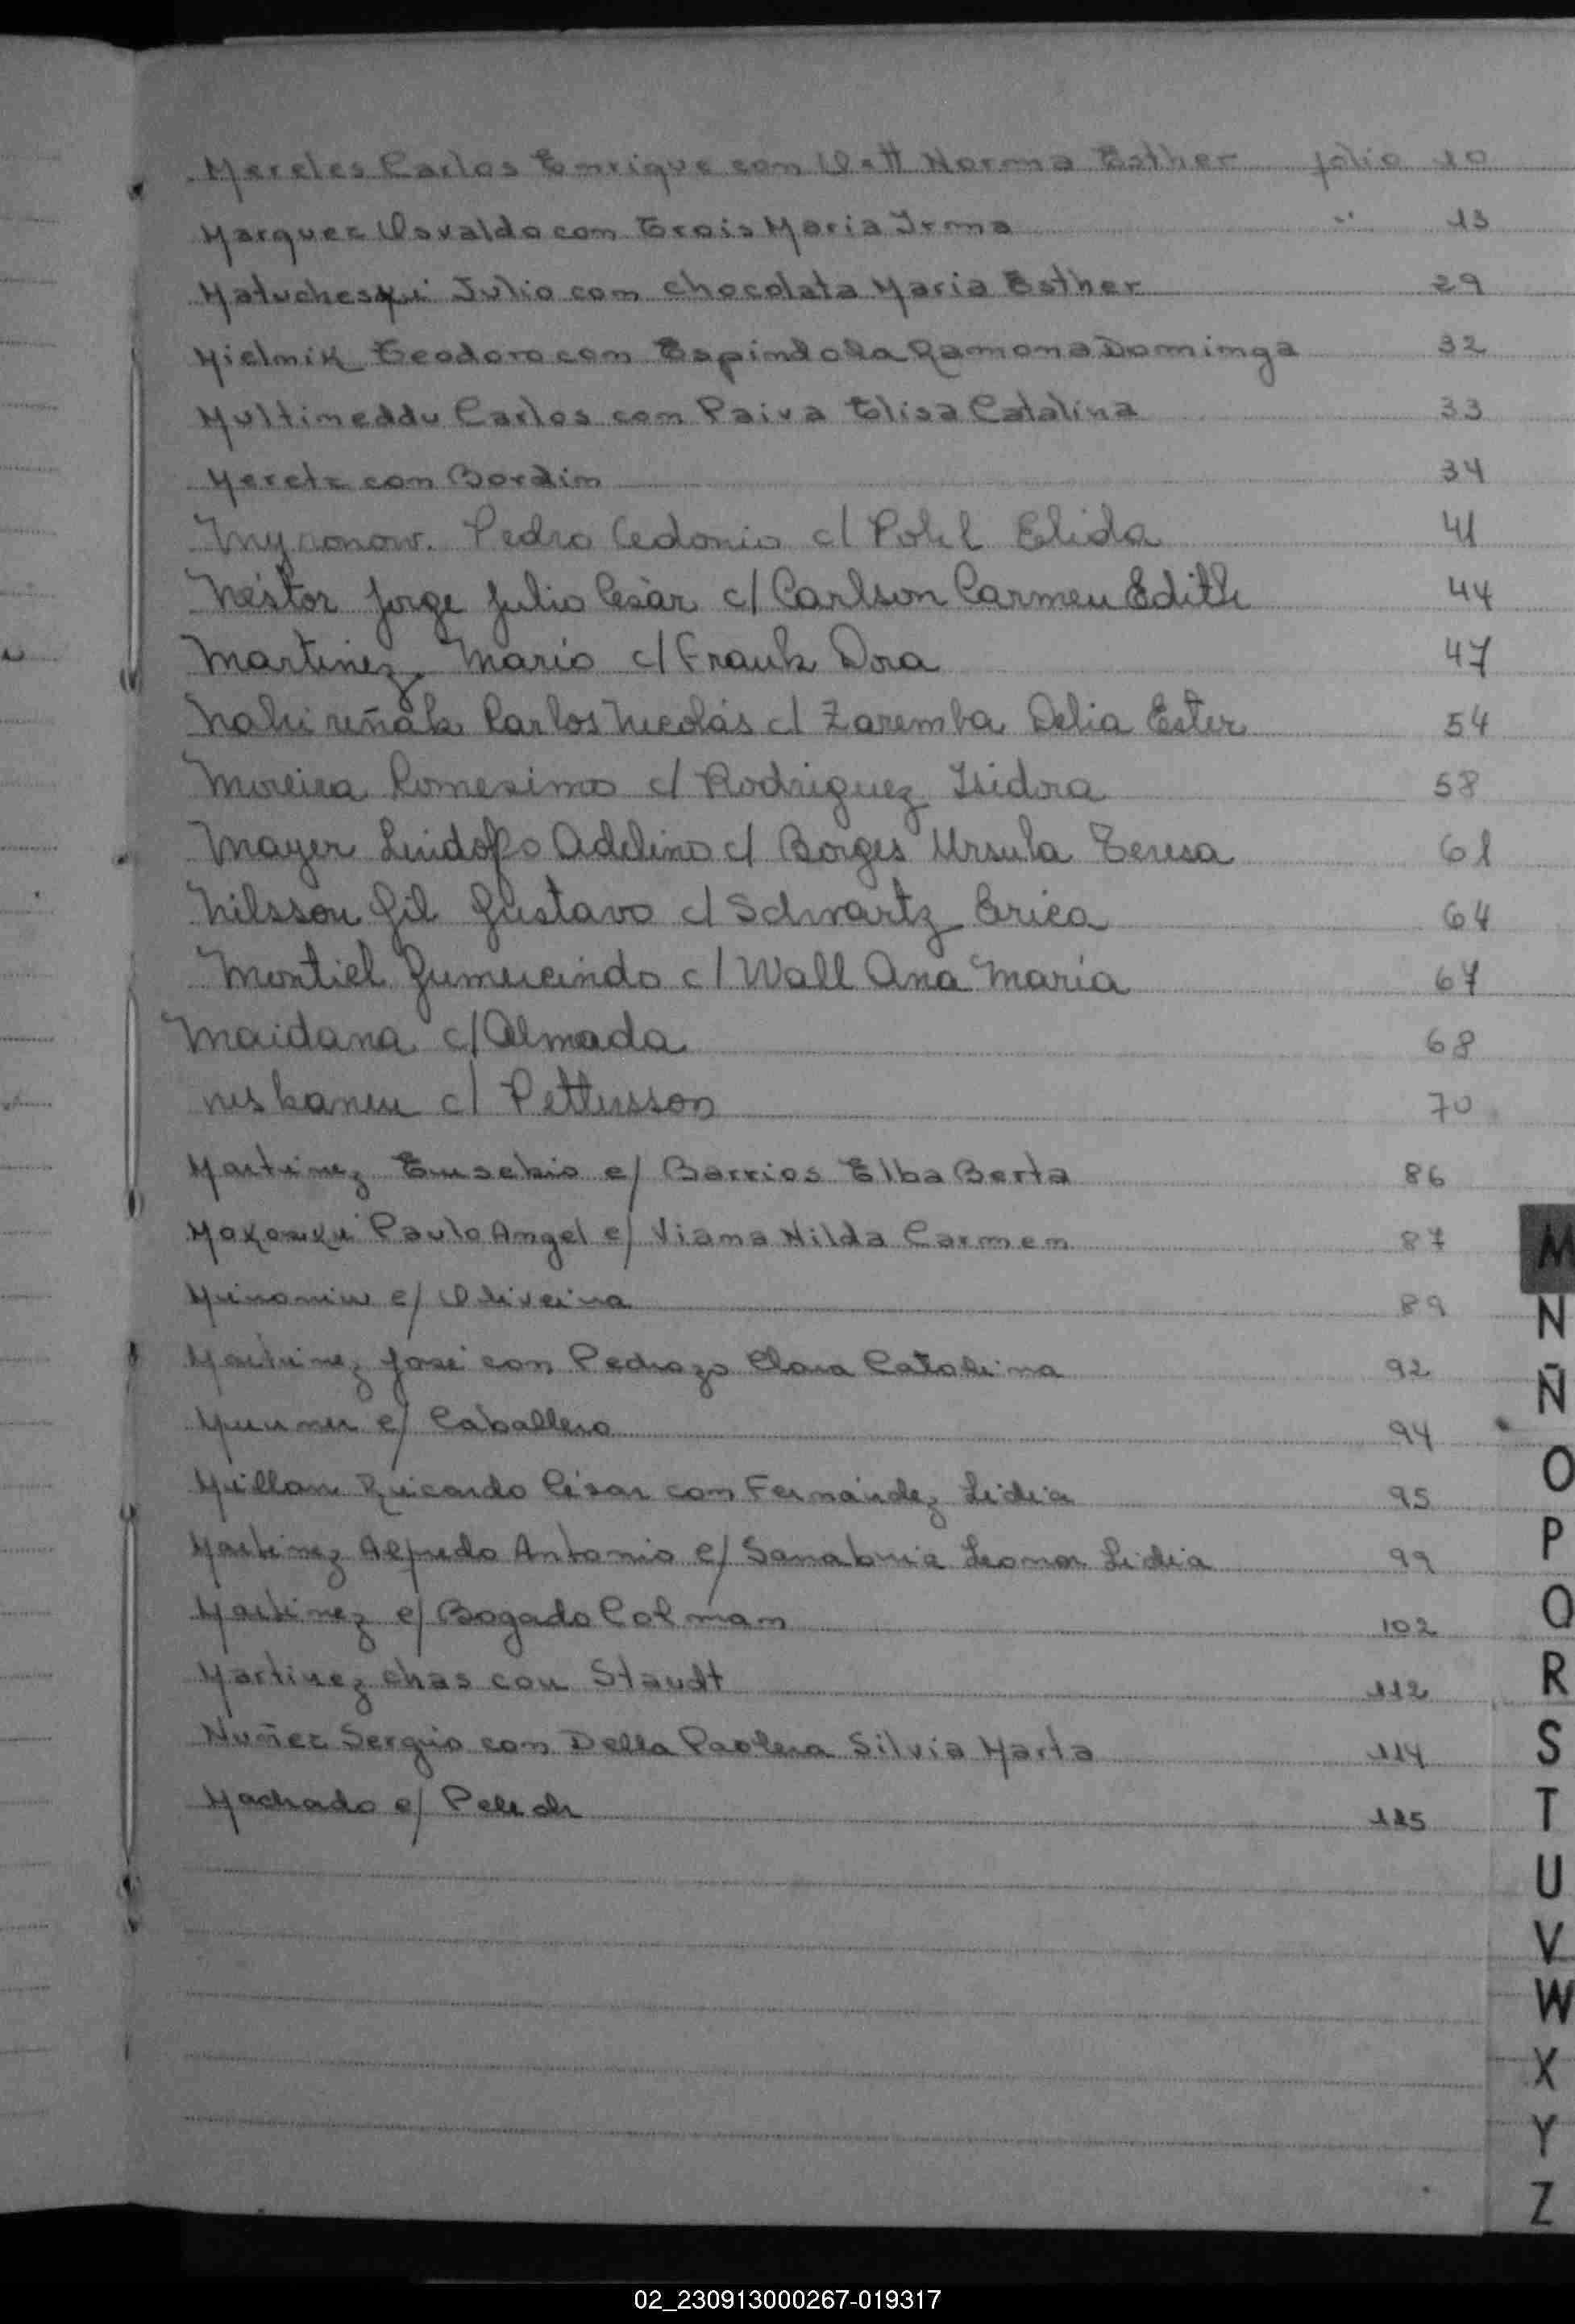 Mereles Carlos Enrique con Ott Norma Esther folio 10
Marquez Osvaldo con Erois Maria Irma " 13
Matucheski Julio con Chocolata Maria Esther 29
Mielnik Teodoro con Espindola Ramona Dominga 32
Multineddu Carlos con Paiva Elisa Catalina 33
Meretz con Bordin 34
Myronow. Pedro Cedonio c/ Pohl Elida 41
Néstor Jorge Julio Cesàr c/ Carlson Carmen Edith 44
Martinez Mario c/ Frank Dora 47
Nahireñak Carlos Nicolás c/ Zaremba Delia Ester 54
Moreira Romesimo c/ Rodriguez Isidora 58
Mayer Lindolfo Adelino c/ Borges Ursula Teresa 61
Nilsson Gil Gustavo c/ Schwartz Erica 64
Montiel Gumercindo c/ Wall Ana María 67
Maidana c/ Almada 68
niskanen c/ Pettersson 70
Martinez Eusebio c/ Barrios Elba Berta 86
Mokoski Paulo Angel c/ Viana Nilda Carmen 87
c/ Oliveira 89
Martinez José con Pedrozo Clara Catalina 92
c/ Caballero 94
Millan Ricardo César con Fernández Lidia 95
Martinez Alfredo Antonio c/ Sanabria Leonor Lidia 99
Martinez c/ Bogado Colman 102
Martinez chas con Staudt 112
Nuñez Sergio con Della Paolera Silvia Marta 114
Machado c/ 115
M
N
Ñ
O
P
Q
R
S
T
U
V
W
X
Y
Z
02_230913000267-019317